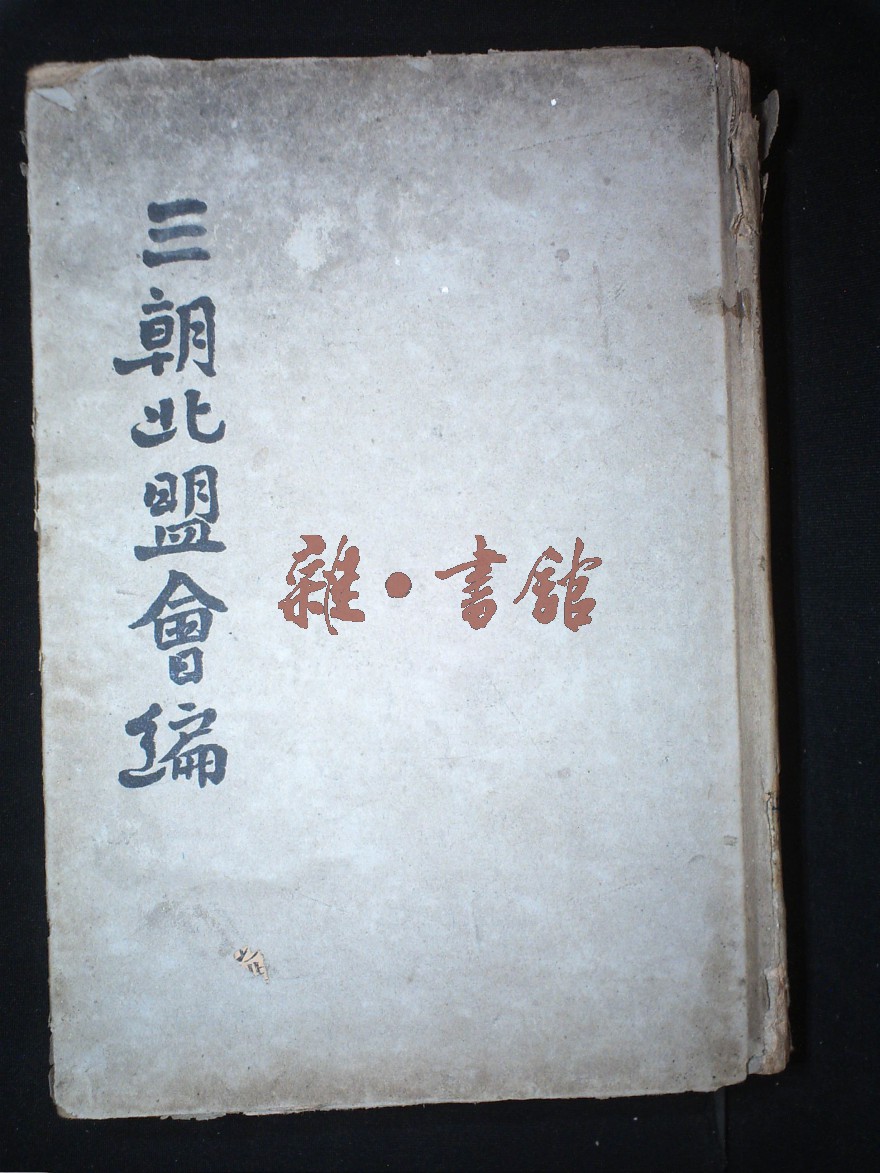 三朝北盟會編
雜·書館